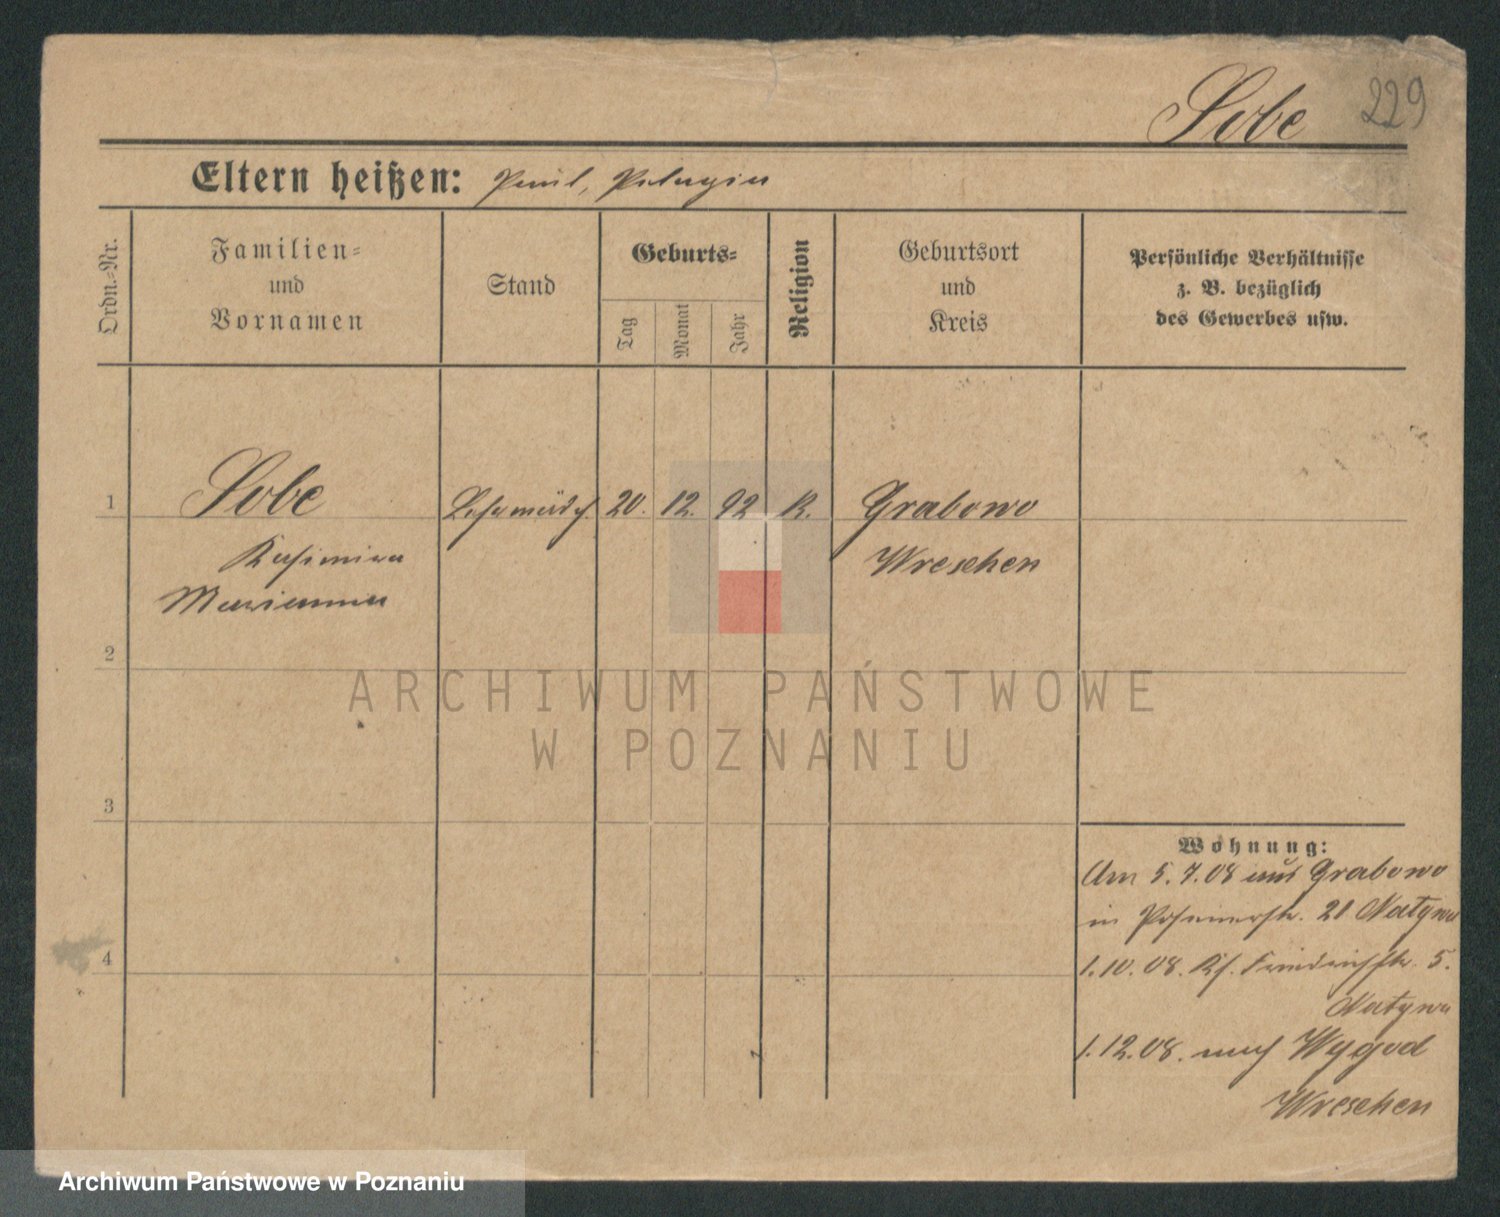 Sobe 229
Eltern heißen: Paul, Pelagia
Ordn.-Nr.
Familien-
und
Vornamen
Stand
Geburts-
Tag
Monat
Jahr
Religion
Geburtsort
und
Kreis
Persönliche Verhältnisse
z. B. bezüglich
des Gewerbes usw.
1 Sobe Lehrmädch. 20. 12. 92 K. Grabowo
Kasimira Wreschen
Marianna
2
ARCHIWUM PAŃSTWOWE
W POZNANIU
3
Wohnung:
Am 5.7.08 aus Grabowo
in Posenerstr. 21
4
1.10.08. Friedrichstr. 5.
1.12.08. nach Wygod
Wreschen
Archiwum Państwowe w Poznaniu